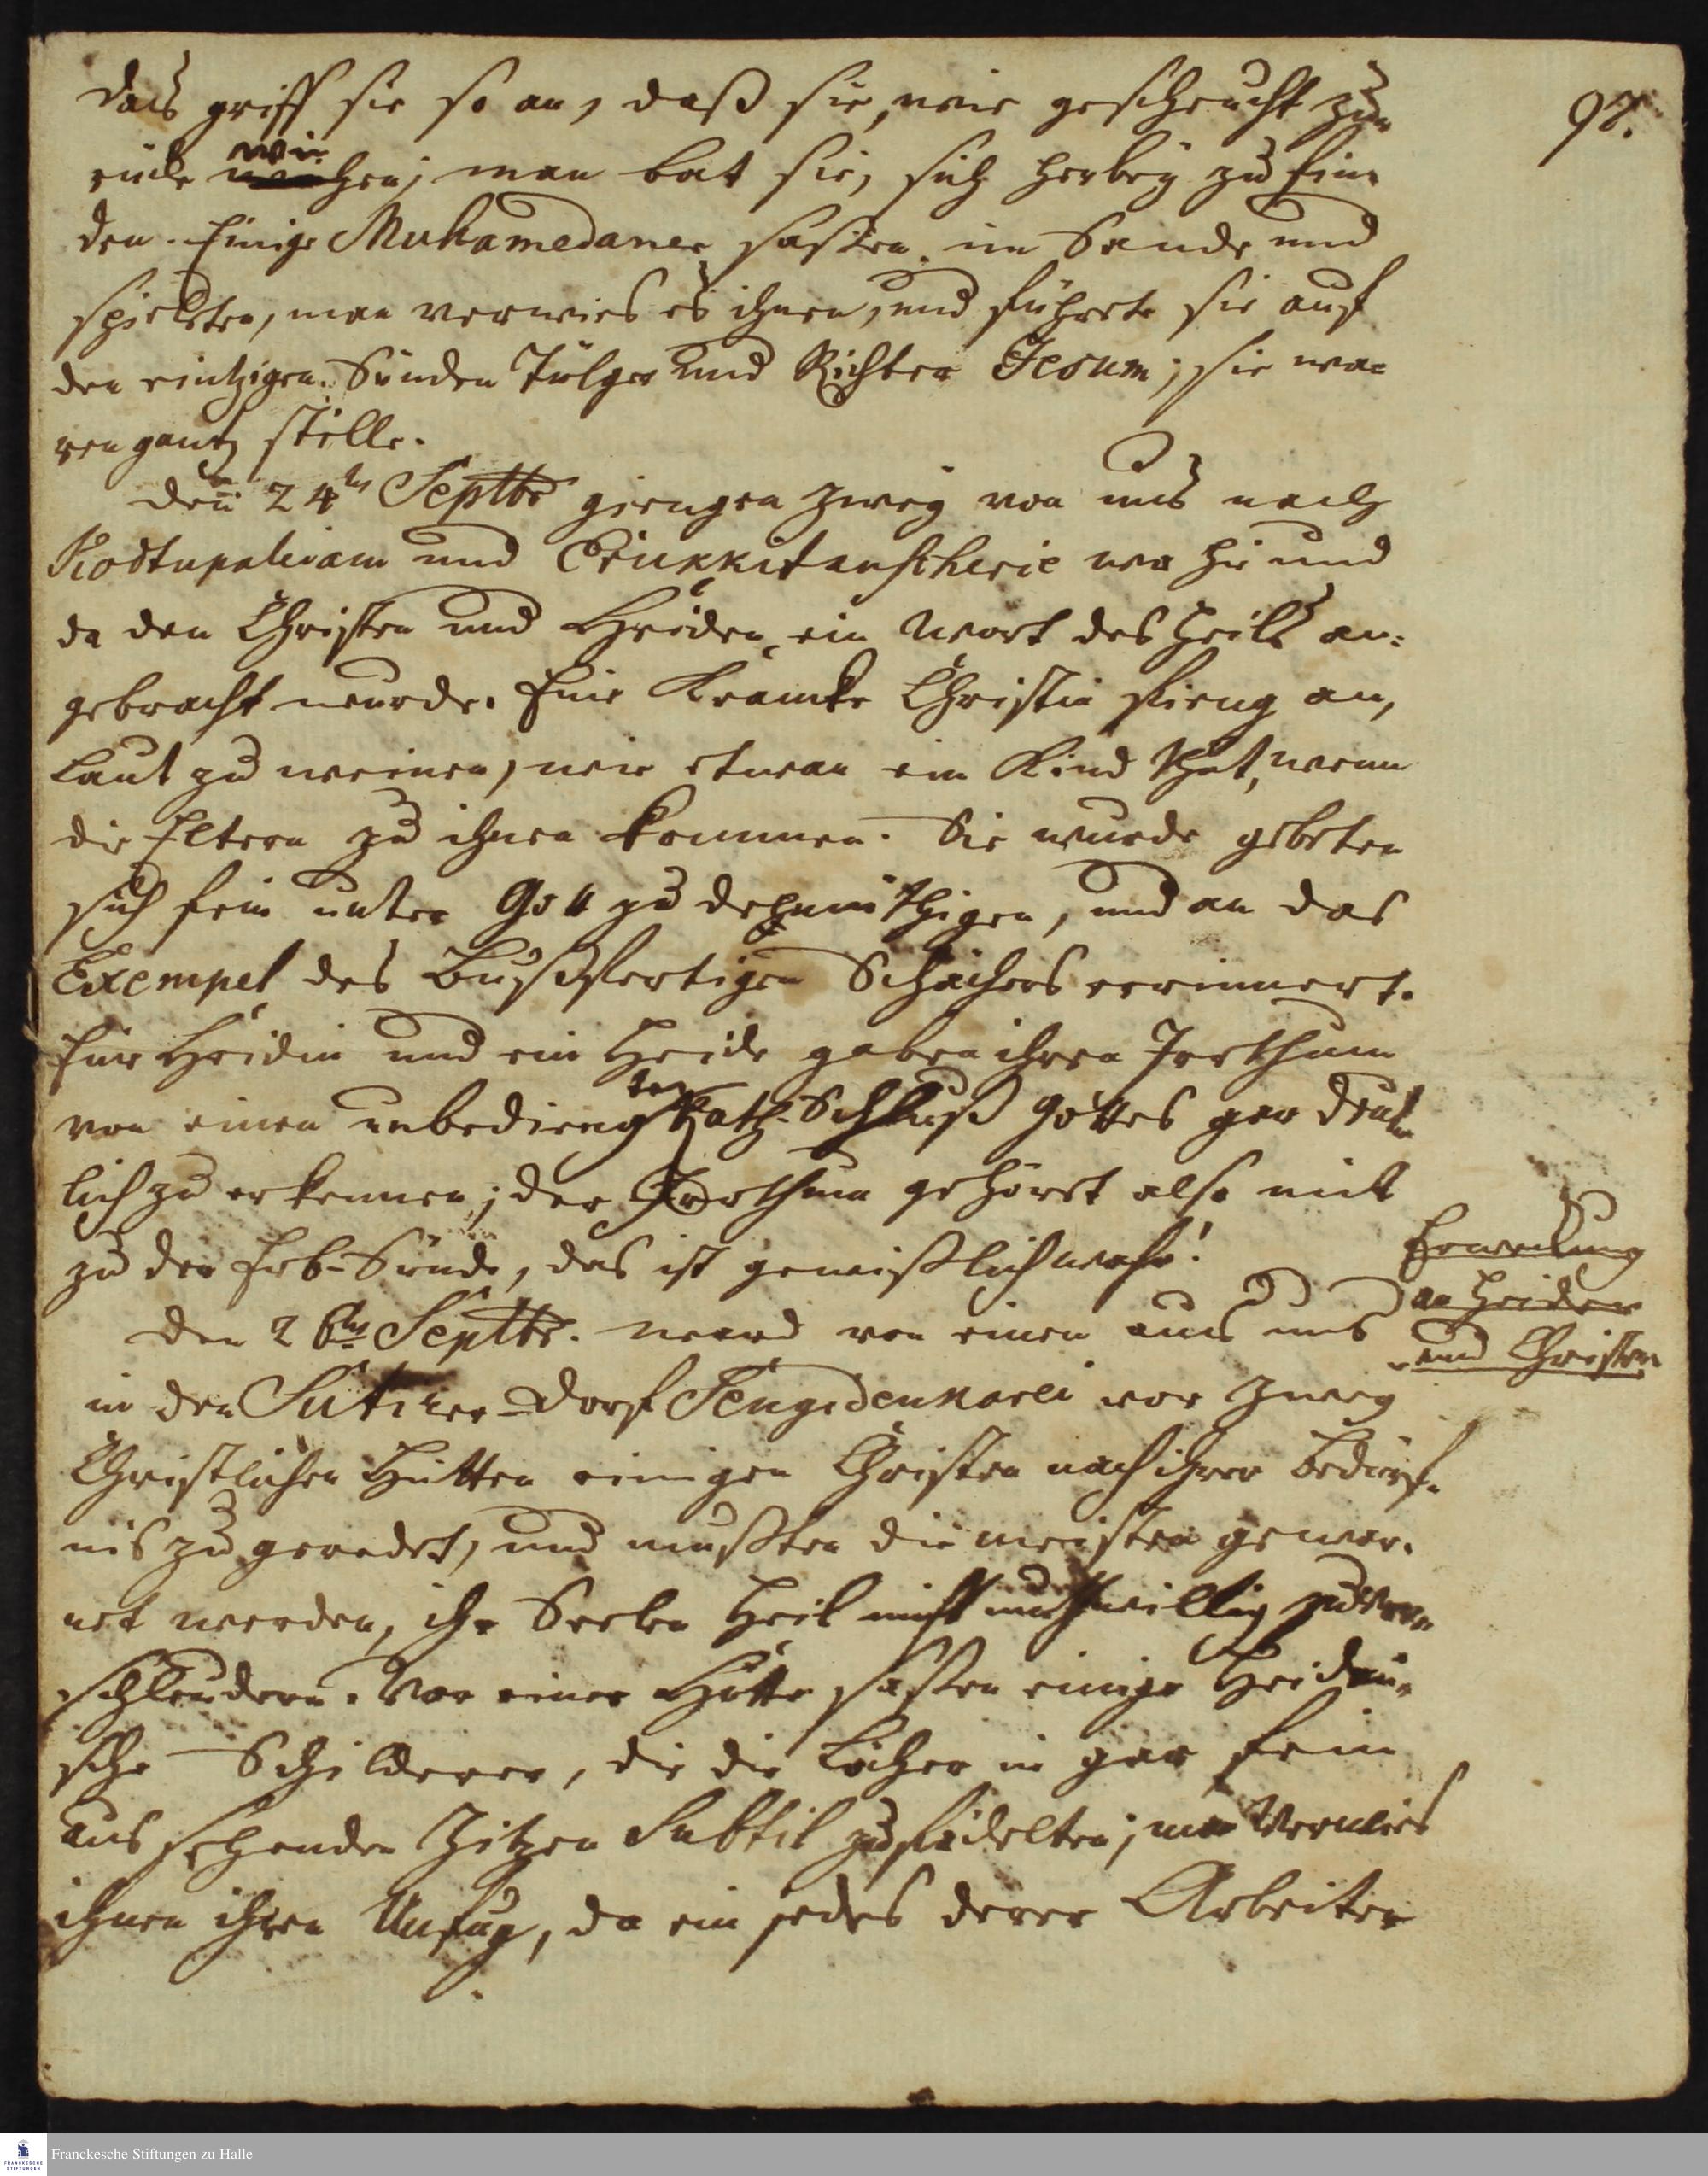 97.
das griff sie so an, daß sie, wie gescheucht zu-
rück wichen; man bat sie, sich herbey zu fin-
den. Einige Muhamedaner saßen im Sande und
spielten, man verwies es ihnen, und führete sie auf
den eintzigen Sünden Tilger und Richter Jesum; sie wa-
ren gantz stille.
Den 24ten Septbr giengen zwey von uns nach
Kottupaleiam und Ciukkitantscherie wo hie und
da den Christen und Heiden ein Wort des Heils an-
gebracht wurde. Eine Krancke Christin fieng an,
laut zu weinen, wie etwan ein Kind thut, wenn
die Eltern zu ihnen kommen. Sie wurde gebeten
sich fein unter Gott zu demüthigen, und an das
Exempel des bußfertigen Schächers errinnert.
Eine Heidin und ein Heide gaben ihren Irrthum
von einen unbediengten Rath-Schluß Gottes gar deut-
lich zu erkennen; der Irrthum gehöret also mit
zu der Erb-Sünde, das ist gewißlich wahr!
Erweckung
an Heiden
und Christen
Den 26ten Septbr. ward von einen aus uns
in den Sutirer-Dorf Sengidenkarei vor zwey
Christlichen Hütten einigen Christen nach ihrer Bedürf-
nis zu geredet, und mußten die meisten gewar-
net werden, ihr Seelen Heil nicht muthwillig zu ver-
schleudern. Vor einer Hütte saßen einige Heidni-
sche Schilderer, die die Löcher in gar fein
aus sehenden Zitzen Subtil zu fidelten; man Verwies
ihnen ihren Unfug, da ein jedes derer Arbeiter
Franckesche Stiftungen zu Halle
FRANCKESCHE
STIFTUNGEN